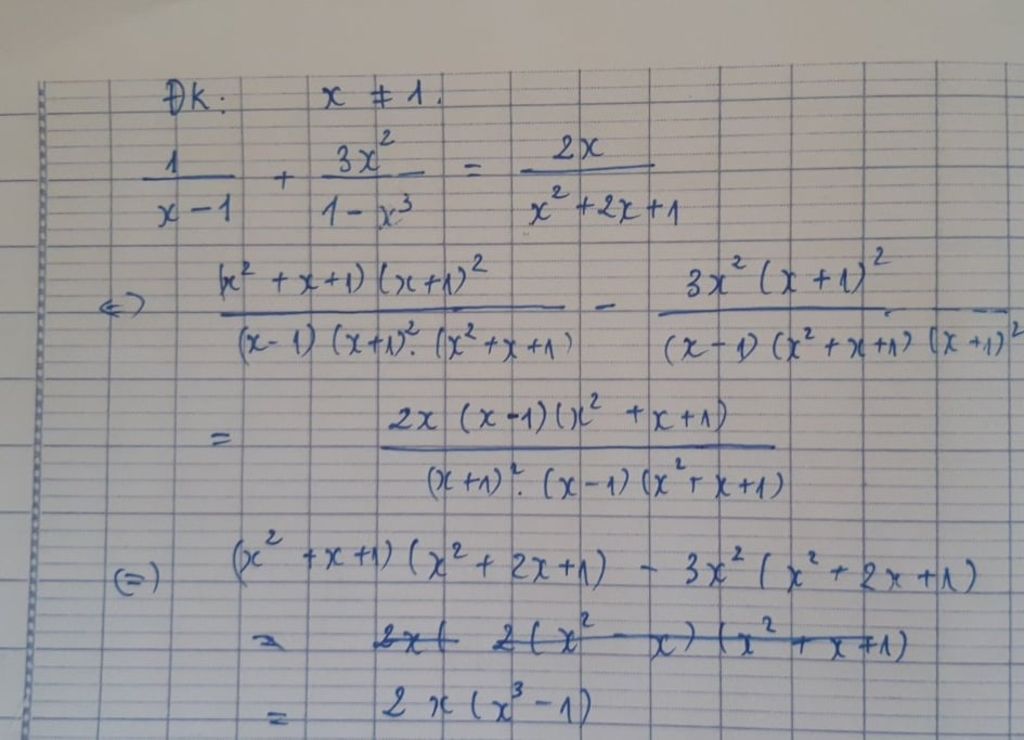 ĐK: x ≠ 1.
1/(x-1) + 3x²/(1-x³) = 2x/(x²+2x+1)
<=> (x²+x+1)(x+1)²/((x-1)(x+1)².(x²+x+1)) - 3x²(x+1)²/((x-1)(x²+x+1)(x+1)²)
= 2x(x-1)(x²+x+1)/((x+1)².(x-1)(x²+x+1))
(=) (x²+x+1)(x²+2x+1) - 3x²(x²+2x+1)
= 2x( 2(x²-x)(x²+x+1)
= 2x(x³-1)